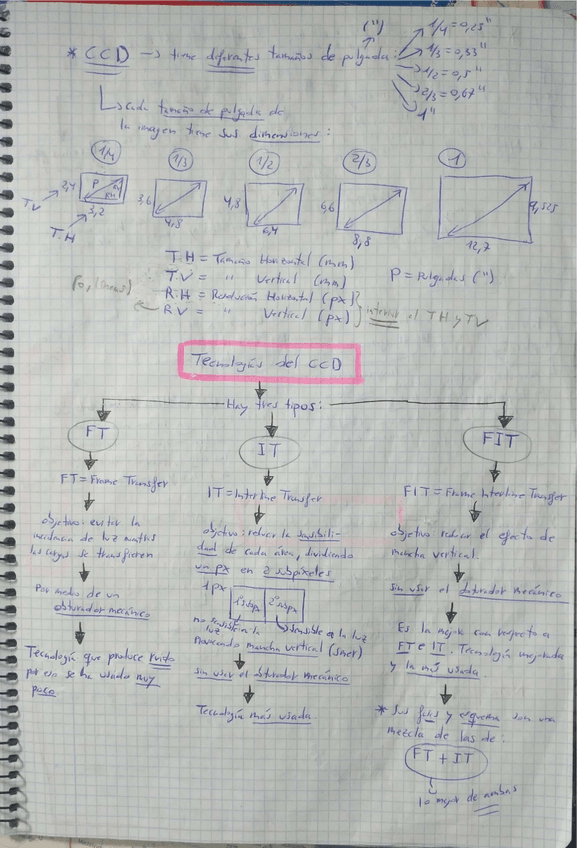 (")
1/4 = 0,25"
* CCD → tiene diferentes tamaños de pulgada:
1/3 = 0,33"
1/2 = 0,5"
2/3 = 0,67"
1"
↳ cada tamaño de pulgada de
la imagen tiene sus dimensiones:
1/4 1/3 1/2 2/3 1
2,4 P RV RH 3,2
3,6 4,8
4,8 6,4
6,6 8,8
9,525 12,7
TV
T.H
T.H = Tamaño Horizontal (mm)
T.V = " Vertical (mm)
P = Pulgadas (")
R.H = Resolución Horizontal (px)
(o, líneas)
R.V = " Vertical (px)
interior al TH y TV
Tecnologías del CCD
Hay tres tipos:
FT
FT = Frame Transfer
objetivo: evitar la
incidencia de luz mientras
las cargas se transfieren
Por medio de un
obturador mecánico
Tecnología que produce ruido
por eso se ha usado muy
poco
IT
IT = Interline Transfer
objetivo: reducir la sensibili-
dad de cada área, dividiendo
un px en 2 subpíxeles
1px
1º subpx 2º subpx
no sensible a la luz
Sensible a la luz
provocando mancha vertical (smer)
sin usar el obturador mecánico
Tecnología más usada
FIT
FIT = Frame Interline Transfer
objetivo reducir el efecto de
mancha vertical.
sin usar el obturador mecánico
Es la mejor con respecto a
FT e IT. Tecnología mejorada
y la más usada.
* Sus fases y esquema son una
mezcla de las de:
FT + IT
lo mejor de ambas